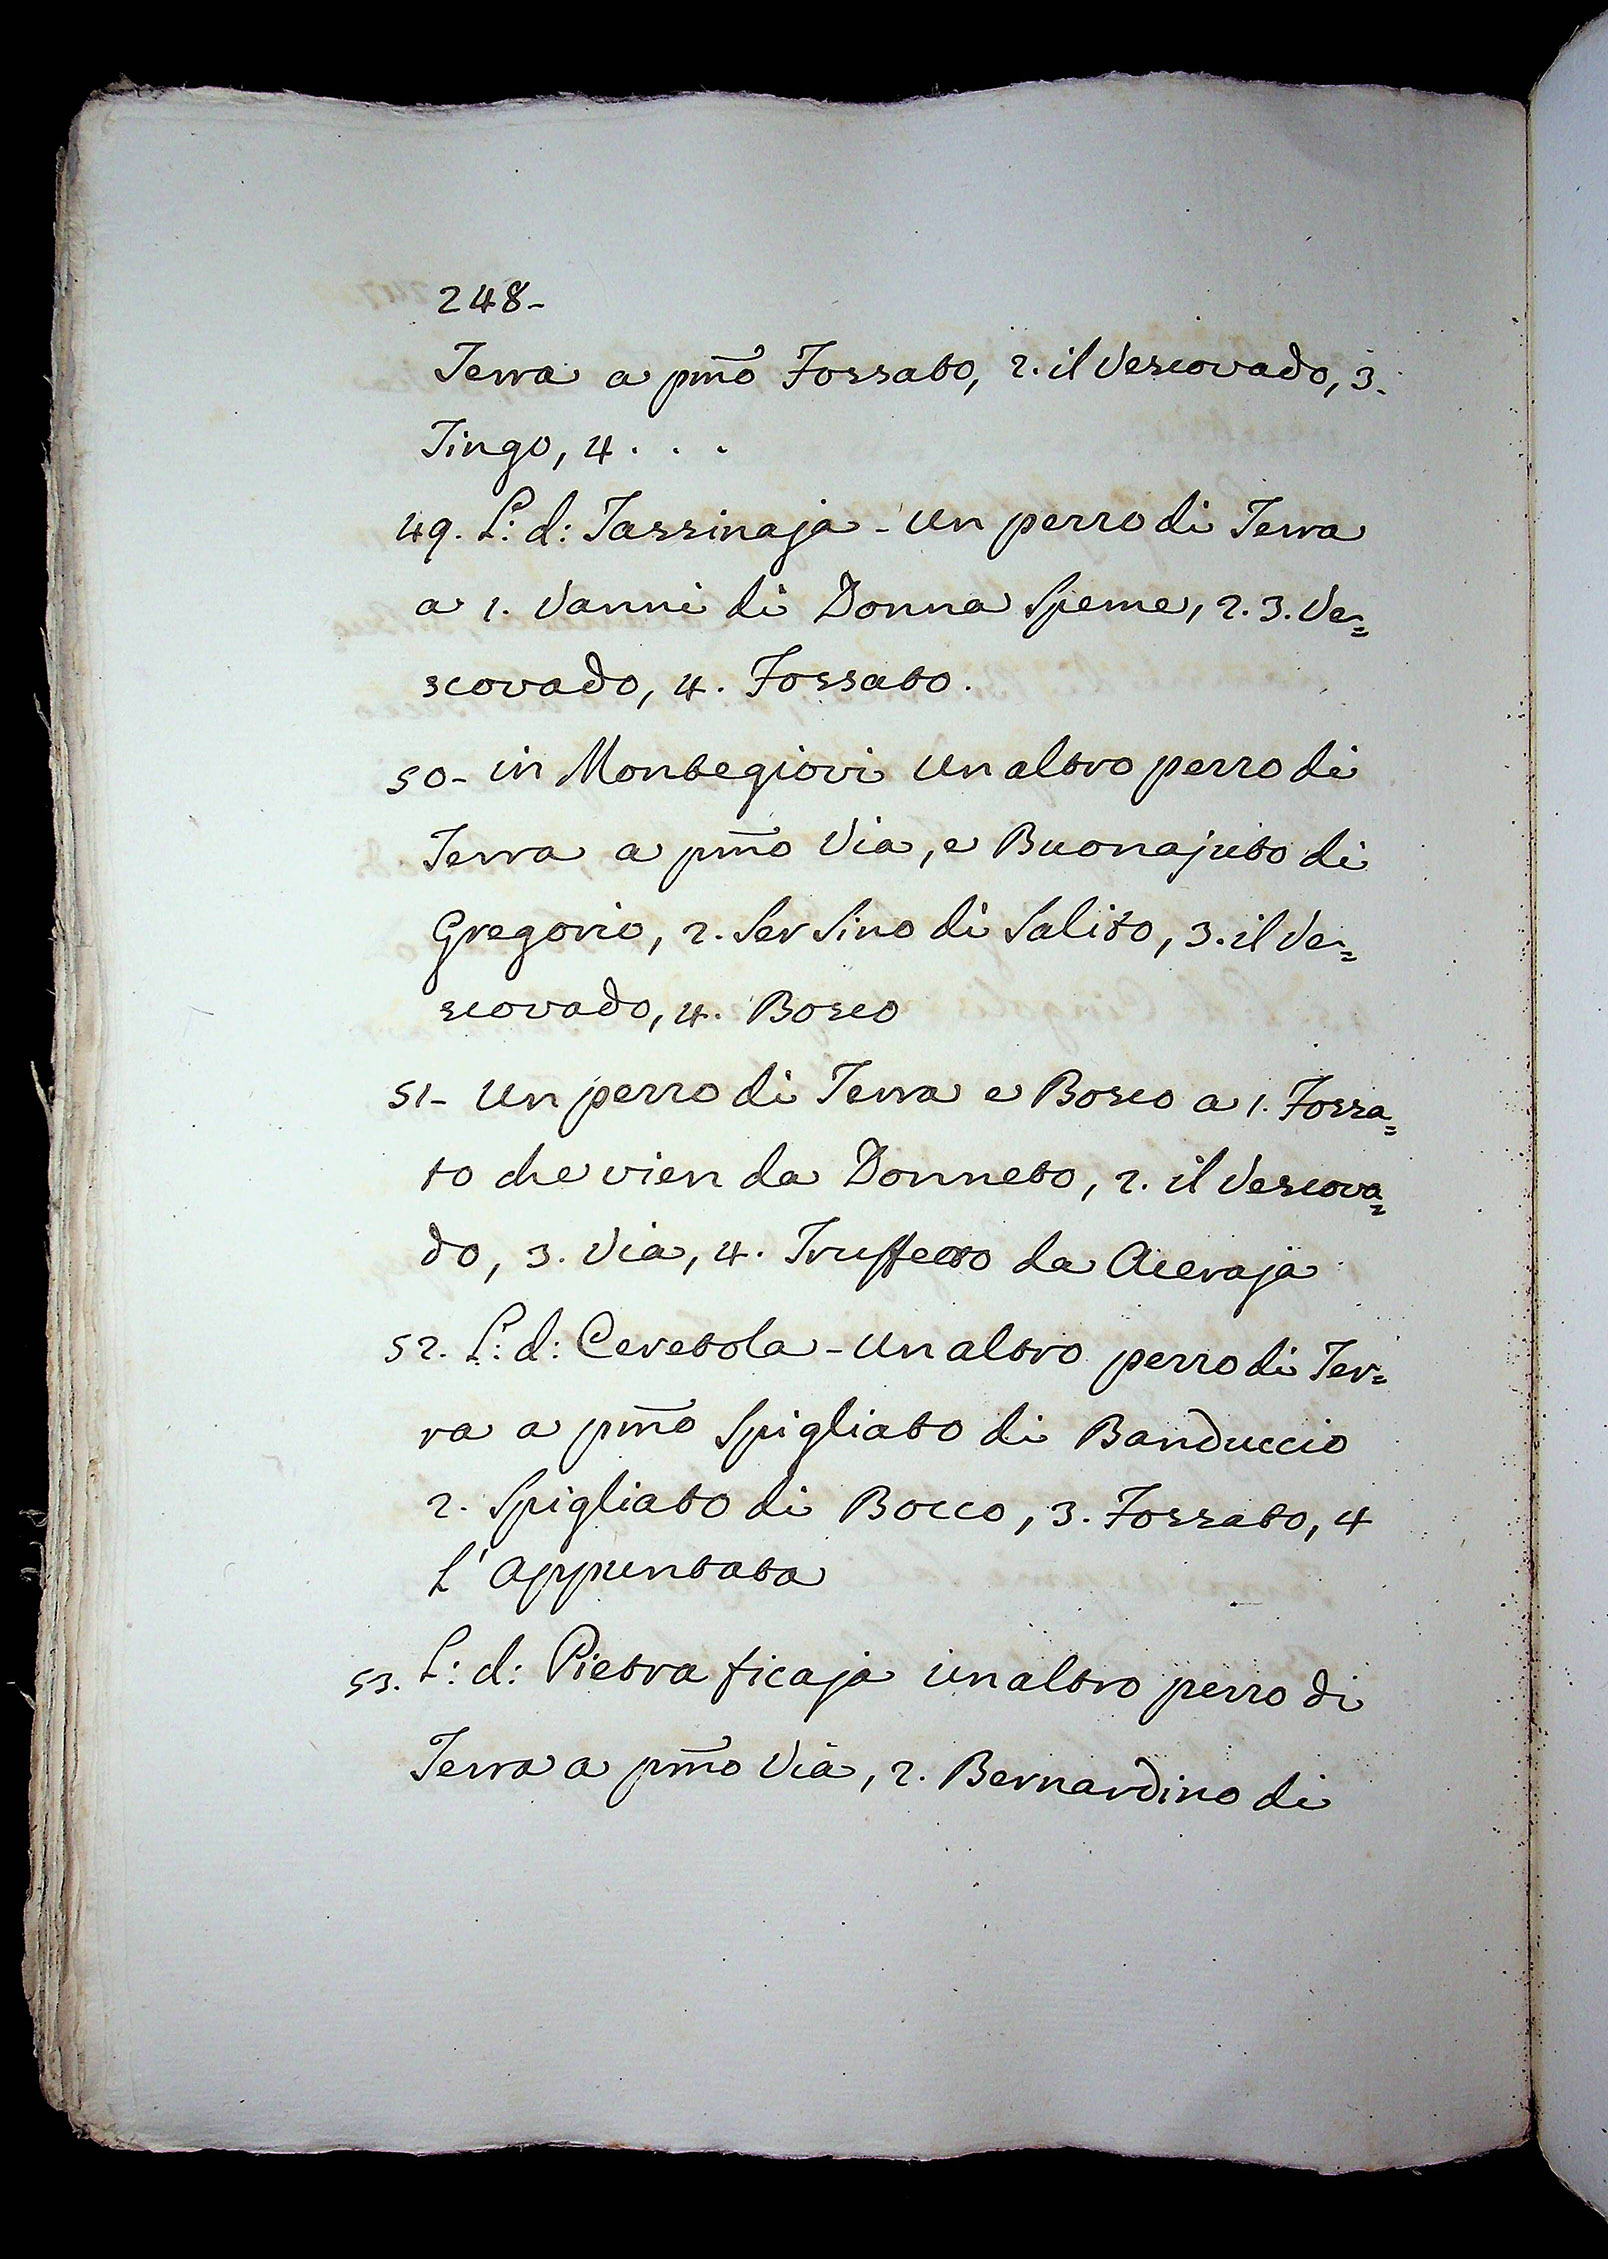 248-
Terra a pmo Fossato, 2. il Vescovado, 3.
Tingo, 4. . .
49. L: d: Tassinaja - Un pezzo di Terra
a 1. Vanni di Donna Speme, 2. 3. Ve=
scovado, 4. Fossato.
50- in Montegiovi Un altro pezzo di
Terra a pmo Via, e Buonajuto di
Gregorio, 2. Ser Sino di Salito, 3. il Ve=
scovado, 4. Bosco
51- Un pezzo di Terra e Bosco a 1. Fossa=
to che vien da Donneto, 2. il Vescova=
do, 3. Via, 4. Truffetto da Aceraja
52. L: d: Ceretola - Un altro pezzo di Ter=
ra a pmo Spigliato di Banduccio
2. Spigliato di Bocco, 3. Fossato, 4
L' Appuntata
53. L: d: Pietra ficaja un altro pezzo di
Terra a pmo Via, 2. Bernardino di